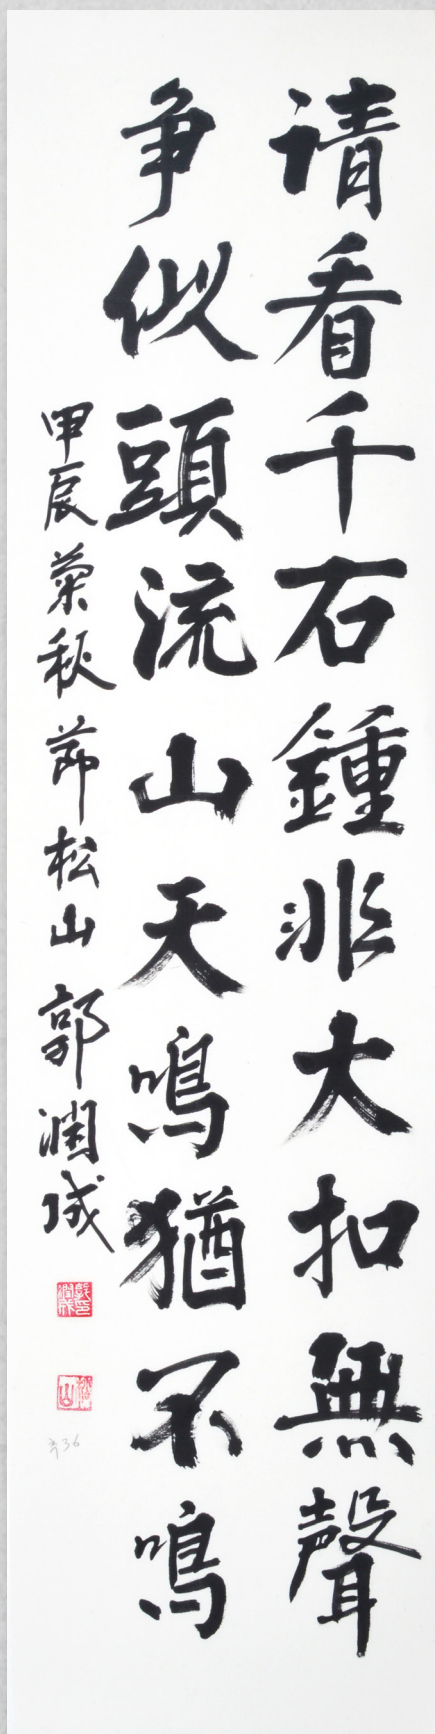 请看千石鍾非大扣無聲
争似頭流山天鳴猶不鳴
甲辰菊秋節松山郭潤成